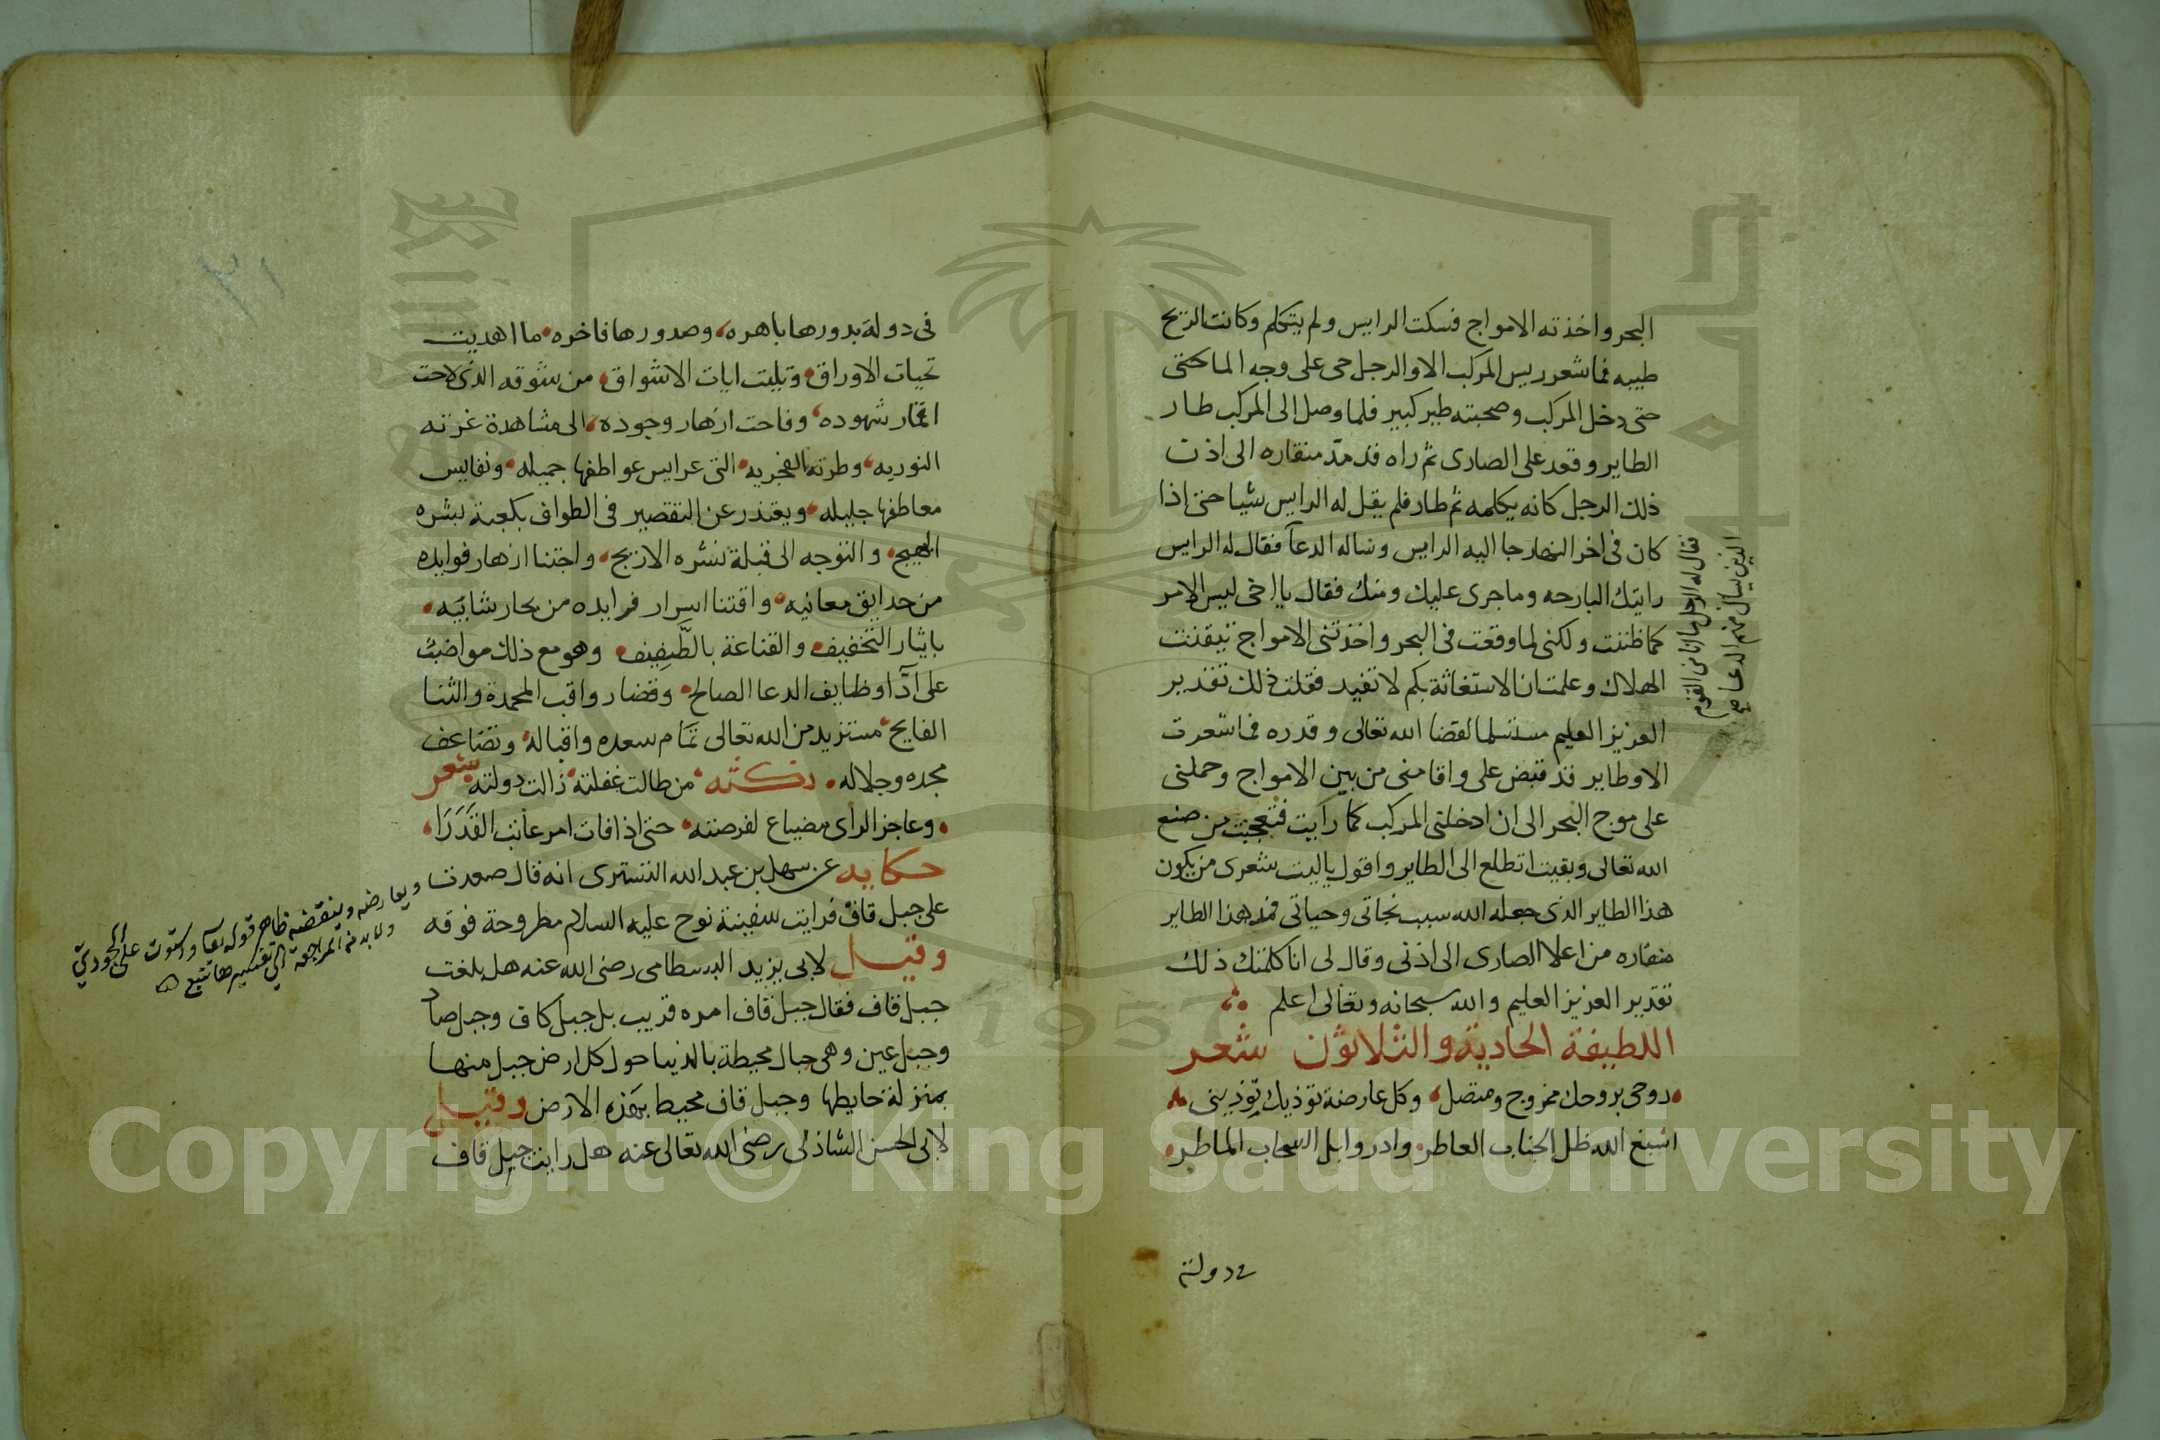 البحر واخذته الامواج فسكت الرايس ولم يتكلم وكانت الريح
طيبه فما شعر ريس المركب الا والرجل حى على وجه الما حتى
حتى دخل المركب وصحبته طير كبير فلما وصل الى المركب طار
الطاير وقعد على الصارى ثم راه قد مدّ منقاره الى اذن
ذلك الرجل كانه يكلمه ثم طار فلم يقل له الرايس شيا حتى اذا
كان فى اخر النهار جا اليه الرايس وساله الدعآ فقال له الرايس
فقال له الرجل ما انا من القوم
الذين يسال منهم الدعا صح
رايتك البارحه وما جرى عليك ومنك فقال يا اخى ليس الامر
كما ظننت ولكنى لما وقعت فى البحر واخذتنى الامواج تيقنت
الهلاك وعلمت ان الاستغاثة بكم لا تفيد فقلت ذلك تقدير
العزيز العليم مستسلما لقضا الله تعالى وقدره فما شعرت
الا وطاير قد قبض على واقامنى من بين الامواج وحملنى
على موج البحر الى ان ادخلنى المركب كما رايت فتعجبت من صنع
الله تعالى وبقيت اتطلع الى الطاير واقول ياليت شعرى من يكون
هذا الطاير الذى جعله الله سبب نجاتى وحياتى فمد هذا الطاير
منقاره من اعلا الصارى الى اذنى وقال لى انا كلمتك ذلك
تقدير العزيز العليم والله سبحانه وتعالى اعلم
اللطيفة الحادية والثلاثون شعر
روحى بروحك ممزوج ومتصل وكل عارضة تؤذيك تؤذينى
اسبغ الله ظل الجناب العاطر وادر وابل السحاب الماطر
فى دولته
فى دولة بدورها باهره وصدورها فاخره ما اهديت
تحيات الاوراق وتليت ايات الاشواق من شوقه الذى لاحت
اقمار شهوده وفاحت ازهار وجوده الى مشاهدة غرته
النوريه وطرته الفجريه التى عرايس عواطفها جميله ونفايس
معاطفها جليله ويعتذر عن التقصير فى الطواف بكعبة بشره
البهيج والتوجه الى قبلة نشره الاريج واجتنا ازهار فوايده
من حدايق معانيه واقتنا اسرار فرايده من بحار شانيه
بايثار التخفيف والقناعة بالطفيف وهو مع ذلك مواضب
على ادآ وظايف الدعا الصالح وقضا رواقب المحمدة والثنا
الفايح مستزيد من الله تعالى تمام سعده واقباله وتضاعف
مجده وجلاله نكته من طالت غفلته زالت دولته شعر
وعاجز الراى مضياع لفرصته حتى اذا فات امر عاتب القدرا
حكايه عن سهل بن عبد الله التسترى انه قال صعدت
على جبل قاف فرايت سفينة نوح عليه السلام مطروحة فوقه
ويعارضه وينقضه ظاهر قوله تعا واستوت على الجودي
ولا بد من المراجعة الى تفسيرها تتبع
وقيل لابى يزيد البسطامى رضى الله عنه هل بلغت
جبل قاف فقال جبل قاف امره قريب بل جبل كاف وجبل صاد
وجبل عين وهى جبال محيطة بالدنيا حول كل ارض جبل منها
بمنزلة حايطها وجبل قاف محيط بهذه الارض وقيل
لابى الحسن الشاذلى رضى الله تعالى عنه هل رايت جبل قاف
1957
Copyright © King Saud University